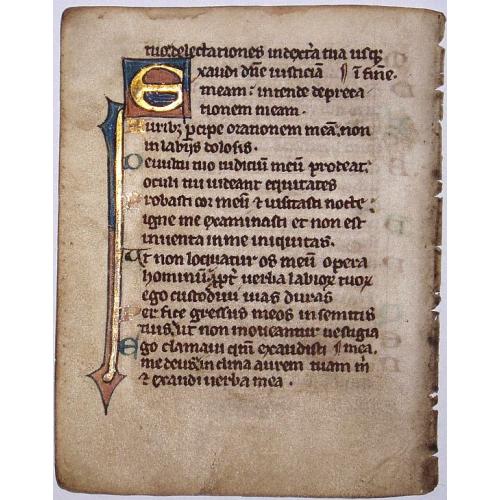 tuo: delectationes in dext̃a tua usq;
Exaudi dñe iusticiã ¶ ĩ finẽ.
meam : intende depreca
tionem meam .
Auribȝ ꝑcipe orationem meã. non
in labijs dolosis .
De uultu tuo iudiciũ meũ prodeat:
oculi tui uideant equitates
Probasti cor meũ & uisitasti nocte :
igne me examinasti et non est
inuenta in me iniquitas .
Ut non loquatur os meũ opera
hominũ: ꝓpt̃ uerba labioꝝ tuoꝝ
ego custodiui uias duras
Per fice gressus meos in semitis
tuis: ut non moueantur uestigia
Ego clamaui qm̃ exaudisti ¶ mea .
me deus: inclina aurem tuam m̃
& exaudi uerba mea .